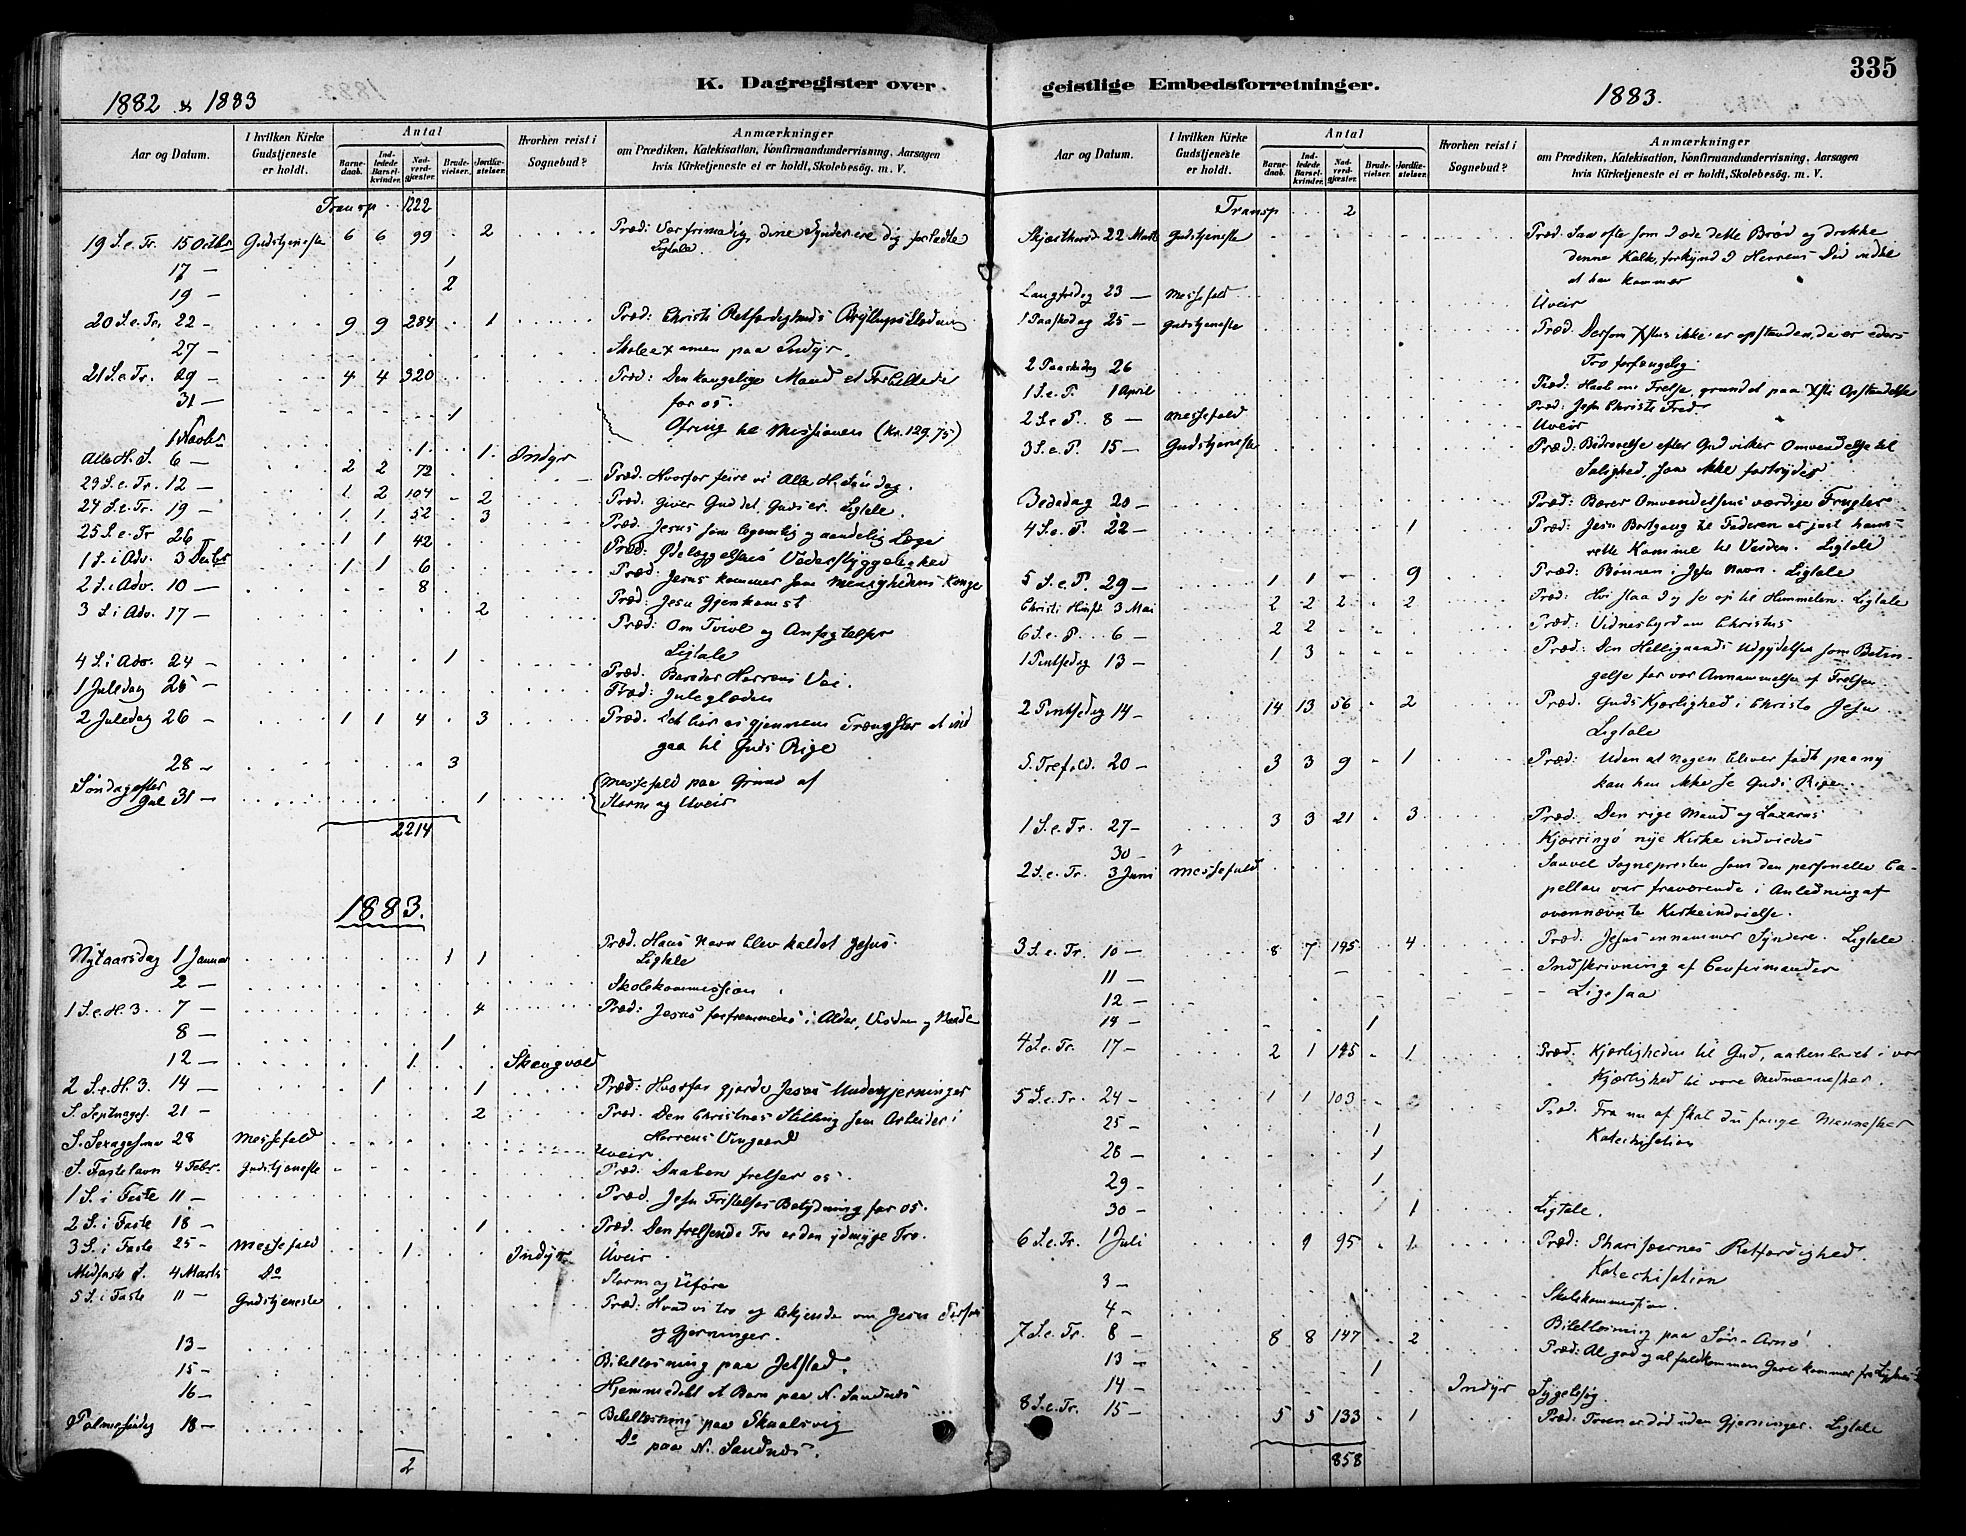 335
K. Dagregister over geistlige Embedsforretninger.
1882 & 1883
1883.
Aar og Datum.
I hvilken Kirke Gudstjeneste er holdt.
Antal
Barnedaab.
Indledede Barselkvinder.
Nadverdgjæster.
Brudevielser.
Jordfæstelser.
Hvorhen reist i Sognebud?
Anmærkninger
om Prædiken, Katekisation, Konfirmandundervisning, Aarsagen
hvis Kirketjeneste ei er holdt, Skolebesøg. m. V.
Transp 1222
19 S. e. Tr. 15 Octbr Gudstjeneste 6 6 99 2 Præd: Vær frimodig, dine Synder ere dig forladte
Ligtale.
17 — 1
19 — 2
20 S. e. Tr. 22 — 9 9 284 1 Præd: Christi Retfærdigheds Bryllups
27 — Skoleexamen paa Indyr.
21 S. e. Tr. 29 — 4 4 320 Præd: Den kongelige Mand et Forbillede
for os.
31 — 1
1 Novbr 1 1 Indyr Ofring til Missionen (Kr. 129.75)
Alle H. S. 6 — 2 2 72 Præd: Hvorfor feire vi Alle H. Søndag.
23 S. e. Tr. 12 — 1 2 104 2 Præd: Giver Gud det, Guds er. Ligtale.
24 S. e. Tr. 19 — 1 1 52 3 Præd: Jesus som legemlig og aandelig Læge
25 S. e. Tr 26 — 1 1 42 Præd: Ødelæggelsens Vederstyggelighed
1 S. i Adv. 3 Decbr 1 1 6 Præd. Jesus kommer som Menighedens Konge
2 S. i Adv. 10 — 8 Præd: Jesu Gjenkomst
3 S. i Adv. 17 — 2 Præd: Om Tvivl og Anfægtelser
Ligtale
4 S. i Adv. 24 — 1 Præd. Bereder Herrens Vei.
1 Juledag 25 — Præd: Juleglæden
2 Juledag 26 — 1 1 4 3 Præd. Det bør os gjennem Trængsler at ind
gaa til Guds Rige
28 — 3
Søndag efter
Jul 31 — 1 Messefald paa Grund af
Storm og Uveir
2214
1883.
Nytaarsdag 1 Januar 1 1 Præd. Hans Navn blev kaldet Jesus.
Ligtale
2 — Skolekommission
1 S. e. H. 3. 7 — 4 Præd: Jesus forfremmedes i Alder, Visdom og Naade
8 — 1
12 — 1
2 S. e. H. 3. 14 — 1 1 Præd: Hvorfor gjorde Jesus Undergjerninger
S. Septuages. 21 — 2 Præd. Den Christnes Stilling som Arbeider i
Herrens Vingaard
S. Sexagesima 28 Messefald Uveir
S. Fastelavn 4 Febr. Gudstjeneste Præd. Daaben frelser os.
1 S. i Faste 11 — Præd. Jesu Fristelses Betydning for os.
2 S. i Faste 18 — 1 Præd. Den frelsende Tro er den ydmyge Tro.
3 S. i Faste 25 — Messefald 1 Indyr Uveir
Midfaste S. 4 Marts Do Storm og Uføre
5 S. i Faste 11 — Gudstjeneste Præd: Hvad vi tro og bekjende om Jesu Person
og Gjerninger.
13 — Bibellæsning paa Jelstad.
15 — Hjemmedøbt et Barn paa N. Sandnes
16 — Bibellæsning paa Skaalsvig
Palmesøndag 18 — Do paa N. Sandnæs.
2
Aar og Datum.
I hvilken Kirke Gudstjeneste er holdt.
Antal
Barnedaab.
Indledede Barselkvinder.
Nadverdgjæster.
Brudevielser.
Jordfæstelser.
Hvorhen reist i Sognebud?
Anmærkninger
om Prædiken, Katekisation, Konfirmandundervisning, Aarsagen
hvis Kirketjeneste ei er holdt, Skolebesøg. m. V.
Transp 2
Skjærthorsd 22 Marts Gudstjeneste Præd. Saa ofte som I æde dette Brød og drikke
denne Kalk, forkynd I Herrens Død indtil
at han kommer
Langfredag 23 — Messefald Uveir
1 Paaskedag 25 — Gudstjeneste Præd. Dersom Xstus ikke er opstanden, da er eders
Tro forfængelig
2 Paaskedag 26 Præd: Haab om Frelse grundet paa Xsti Opstandelse
1 S. e. P. 1 April Præd: Jesu Christi Fred
2 S. e. P. 8 — Messefald Uveir
3 S. e. P. 15 — Gudstjeneste Præd: Bedrøvelse efter Gud virker Omvendelse til
Salighed, som ikke fortrydes
Bededag 20 — Præd: Bærer Omvendelsens værdige Frugter
4 S. e. P. 22 — 1 Præd: Jesu Bortgang til Faderen er just hans
rette Komme til Verden. Ligtale
5 S. e. P. 29 — 1 1 — 9 Præd: Bønnen i Jesu Navn. Ligtale
Christi Himf. 3 Mai 2 2 2 2 Præd: Hvi staa I og se op til Himmelen. Ligtale
6 S. e. P. 6 — 2 2 — Præd: Vidnesbyrd om Christus
1 Pintsedag 13 — 1 3 — Præd: Den Helligaands Udgydelse som Betin-
gelse for vor Annammelse af Frelsen
2 Pintsedag 14 — 14 13 56 2 Præd. Guds Kjærlighed i Christo Jesu
Ligtale
S. Trefold. 20 — 3 3 9 1 Præd: Uden at Nogen bliver født paany
kan han ikke se Guds Rige.
1 S. e. Tr. 27 — 3 3 21 3 Præd. Den rige Mand og Lazarus
30 — Kjærringø nye Kirke indviedes
2 S. e. Tr. 3 Juni Messefald Saavel Sognepresten som den personelle Ca-
pellan var fraværende i Anledning af
ovennævnte Kirkeindvielse.
3 S. e. Tr. 10 — 8 7 195 4 Præd: Jesus annammer Syndere. Ligtale
11 — Indskrivning af Confirmander
12 — Ligesaa
14 — 1
4 S. e. Tr. 17 — 2 1 145 1 Præd. Kjærligheden til Gud, aabenbaret i vor
Kjærlighed til vore Medmennesker.
5 S. e. Tr. 24 — 1 1 103 Præd. Fra nu af skal du fange Mennesker
Katechisation
25 — 1
28 — 1
29 — 1
30 — 1 Ligtale.
6 S. e. Tr. 1 Juli 9 95 1 Præd: Pharisæernes Retfærdighed.
Katechisation
3 — Skolekommission.
4 — Bibellæsning paa Sør-Arnø
7 S. e. Tr. 8 — 8 8 147 2 Præd: Al god og al fuldkommen Gave kommer fra
13 — 1
14 — Indyr Sygebesøg
8 S. e. Tr. 15 — 5 5 133 1 Præd: Troen er død uden Gjerninger. Ligtale
858